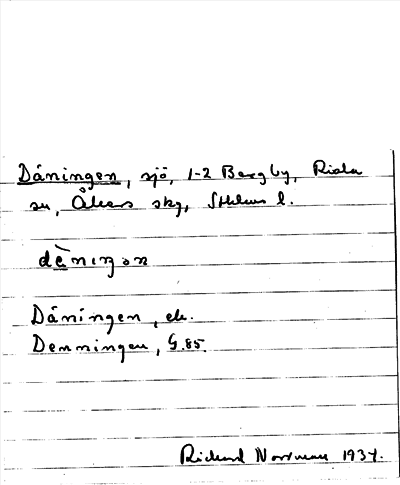 Dåningen, sjö, 1-2 Bergby, Riala
sn, Åkers skg, Sthlms l.
dèniŋən
Dåningen, ek.
Denningen, G.85.
Richard Norrman 1934.